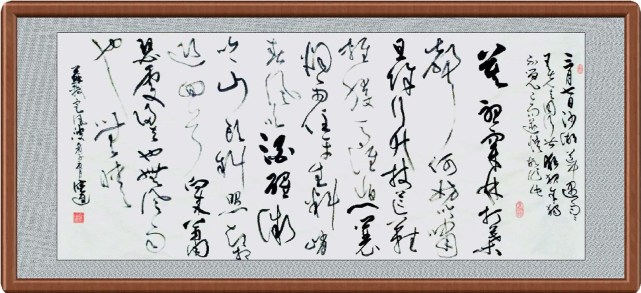 三月七日沙湖道中遇雨
雨具先去同行皆狼狈余独
不觉已而遂晴故作此
莫听穿林打葉
声何妨吟啸
且徐行竹杖芒鞋
轻胜马谁怕一蓑
烟雨任平生料峭
春风吹酒醒微
冷山头斜照却相
迎回首向来萧
瑟处归去也无风雨
也无晴
苏轼定风波